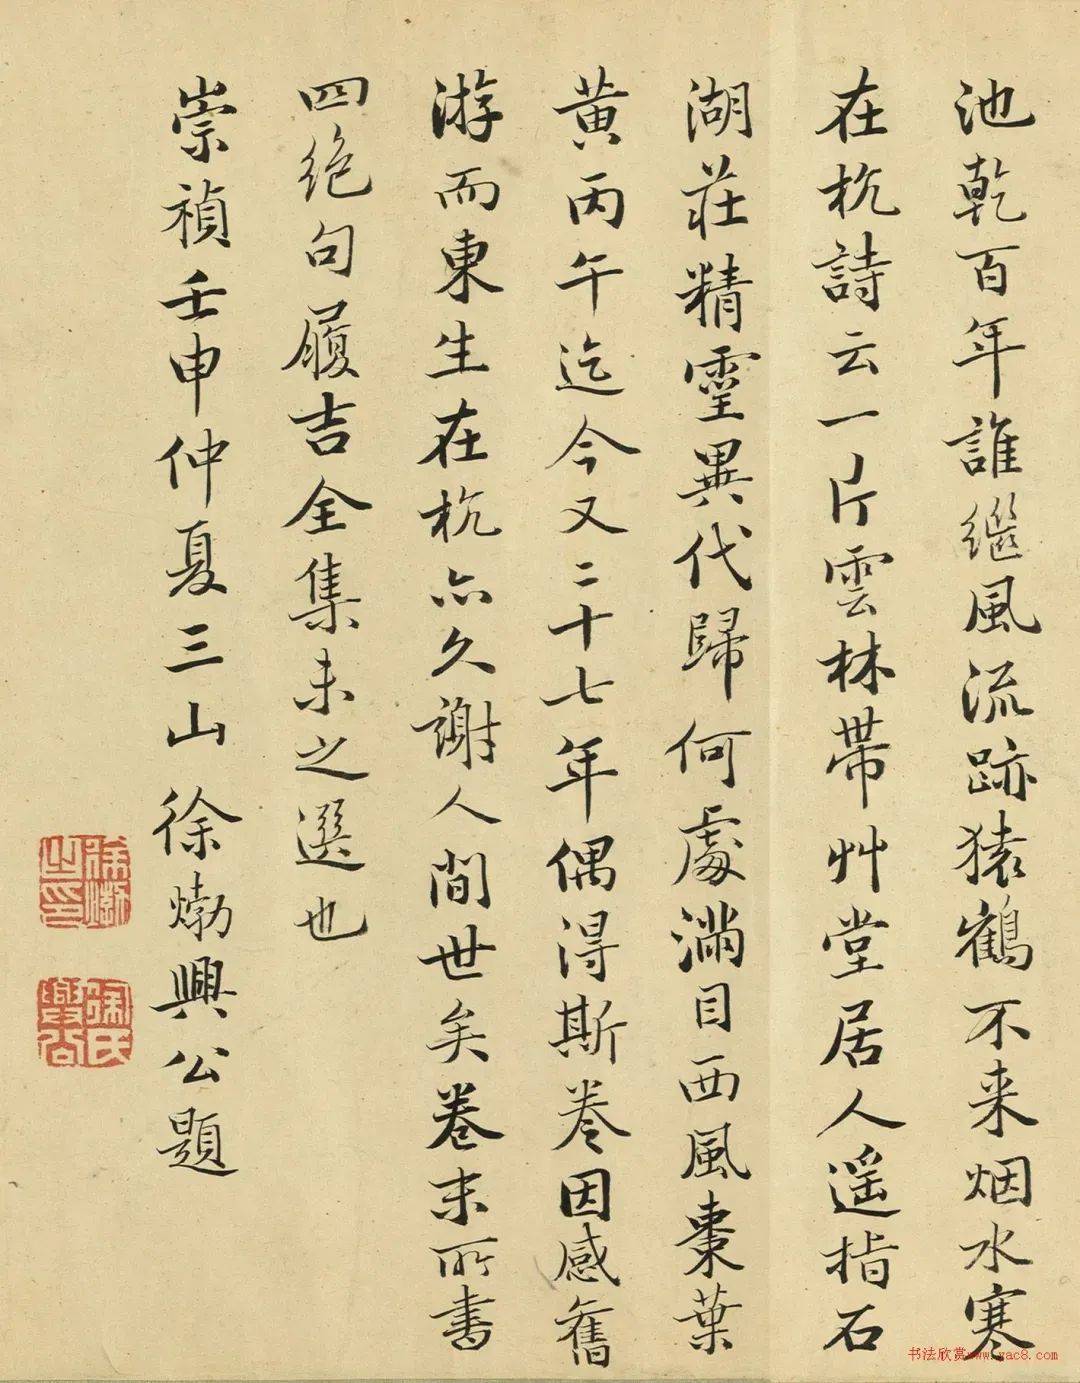 池乾百年誰繼風流跡猿鶴不来烟水寒
在杭詩云一片雲林帶艸堂居人遥指石
湖莊精靈異代歸何處滿目西風棗葉
黄丙午迄今又二十七年偶得斯卷因感舊
游而東生在杭亦久謝人間世矣卷末所書
四绝句履吉全集未之選也
崇禎壬申仲夏三山徐𤊹興公題
徐𤊹之印
徐氏興公
书法欣赏www.yac8.com